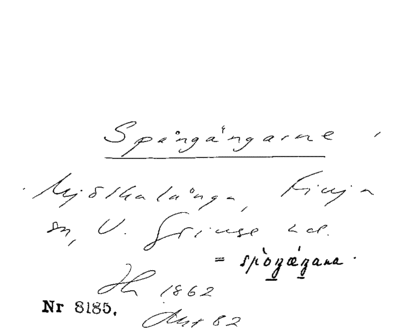 Spångångarne
Mjölkalånga, Finja
sn, V. Göinge hd.
= spòŋæŋana.
1862
Nr 8185.
82